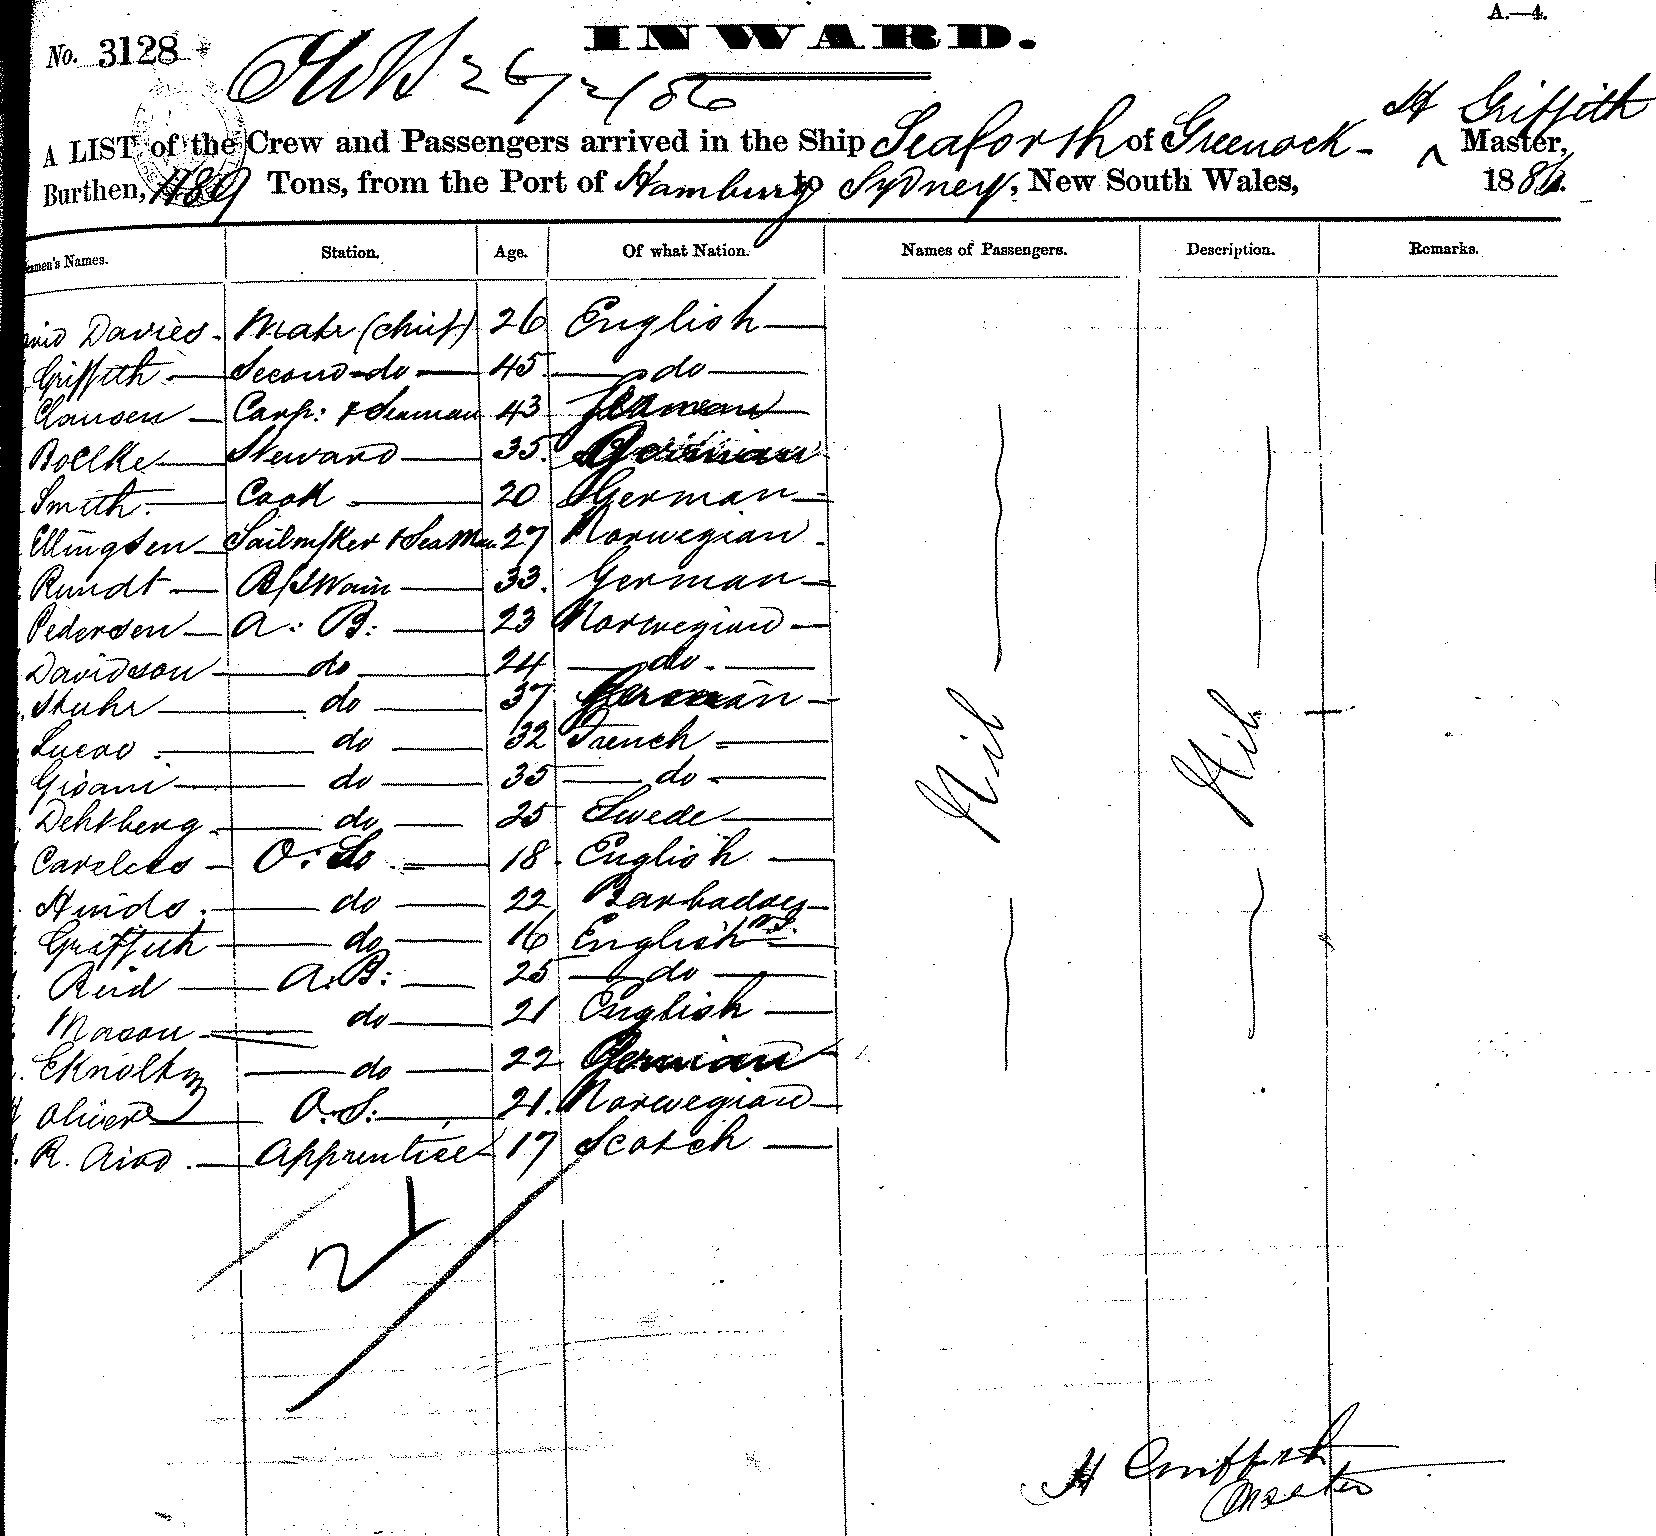 A.—4.
No. 3128
INWARD.
26/2/86
A LIST of the Crew and Passengers arrived in the Ship Seaforth of Greenock - H Griffith Master,
Burthen, 1189 Tons, from the Port of Hamburg to Sydney, New South Wales, 1886.
amen's Names. Station. Age. Of what Nation. Names of Passengers. Description. Remarks.
Davies - Mate (chief) 26 English
Griffith Second do 45 do
Clausen Carp: & Seaman 43 German
Boelke Steward 35 German
Smith Cook 20 German
Ellingsen Sailmaker & Seaman 27 Norwegian
Rundt B/Swain 33 German
Pedersen A: B: 23 Norwegian
Davidson do 24 do
Stuhr do 37 German
Lucas do 32 French
Gisani do 35 do
Dehlberg do 25 Swede
Careless O: S 18 English
Hinds do 22 Barbadoes
Griffith do 16 English
Reid A.B: 25 do
Mason do 21 English
Eknoltz do 22 German
Oliver O.S: 21. Norwegian
R. Aird Apprentice 17 Scotch
Nil Nil
21
H Griffith
Master